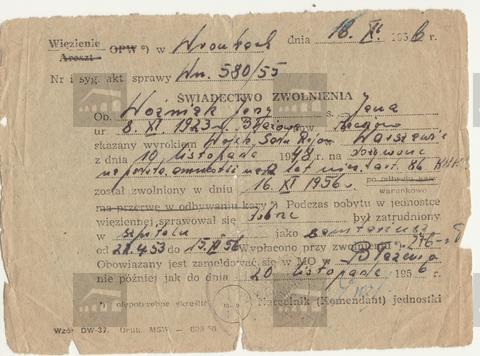 Więzienie OPW *) w Wronkach dnia 16. XI. 1956 r.
Areszt
Nr i syg. akt sprawy Wn. 580/55
ŚWIADECTWO ZWOLNIENIA
Ob. Woźniak Jerzy s. Jana
ur 8. XI. 1923 r. Błażowa
skazany wyrokiem Wojsk. Sądu Rejon. Warszawie
z dnia 10 listopada 1948 r. na
na podst. amnestii na lat art. 86
został zwolniony w dniu 16 XI 1956 r. po odbyciu kary
warunkowo
ma przerwę w odbywaniu kary *) Podczas pobytu w jednostce
więziennej sprawował się dobrze był zatrudniony
w szpitalu jako sanitariusz
od 22.4.53 do 15.XI.56 Wypłacono przy zwolnieniu 276 zł
Obowiązany jest zameldować się w MO w Błażowa
nie później jak do dnia 20 listopada 1956
*) niepotrzebne skreślić
Naczelnik (Komendant) jednostki
Wzór DW-37. Druk. MSW